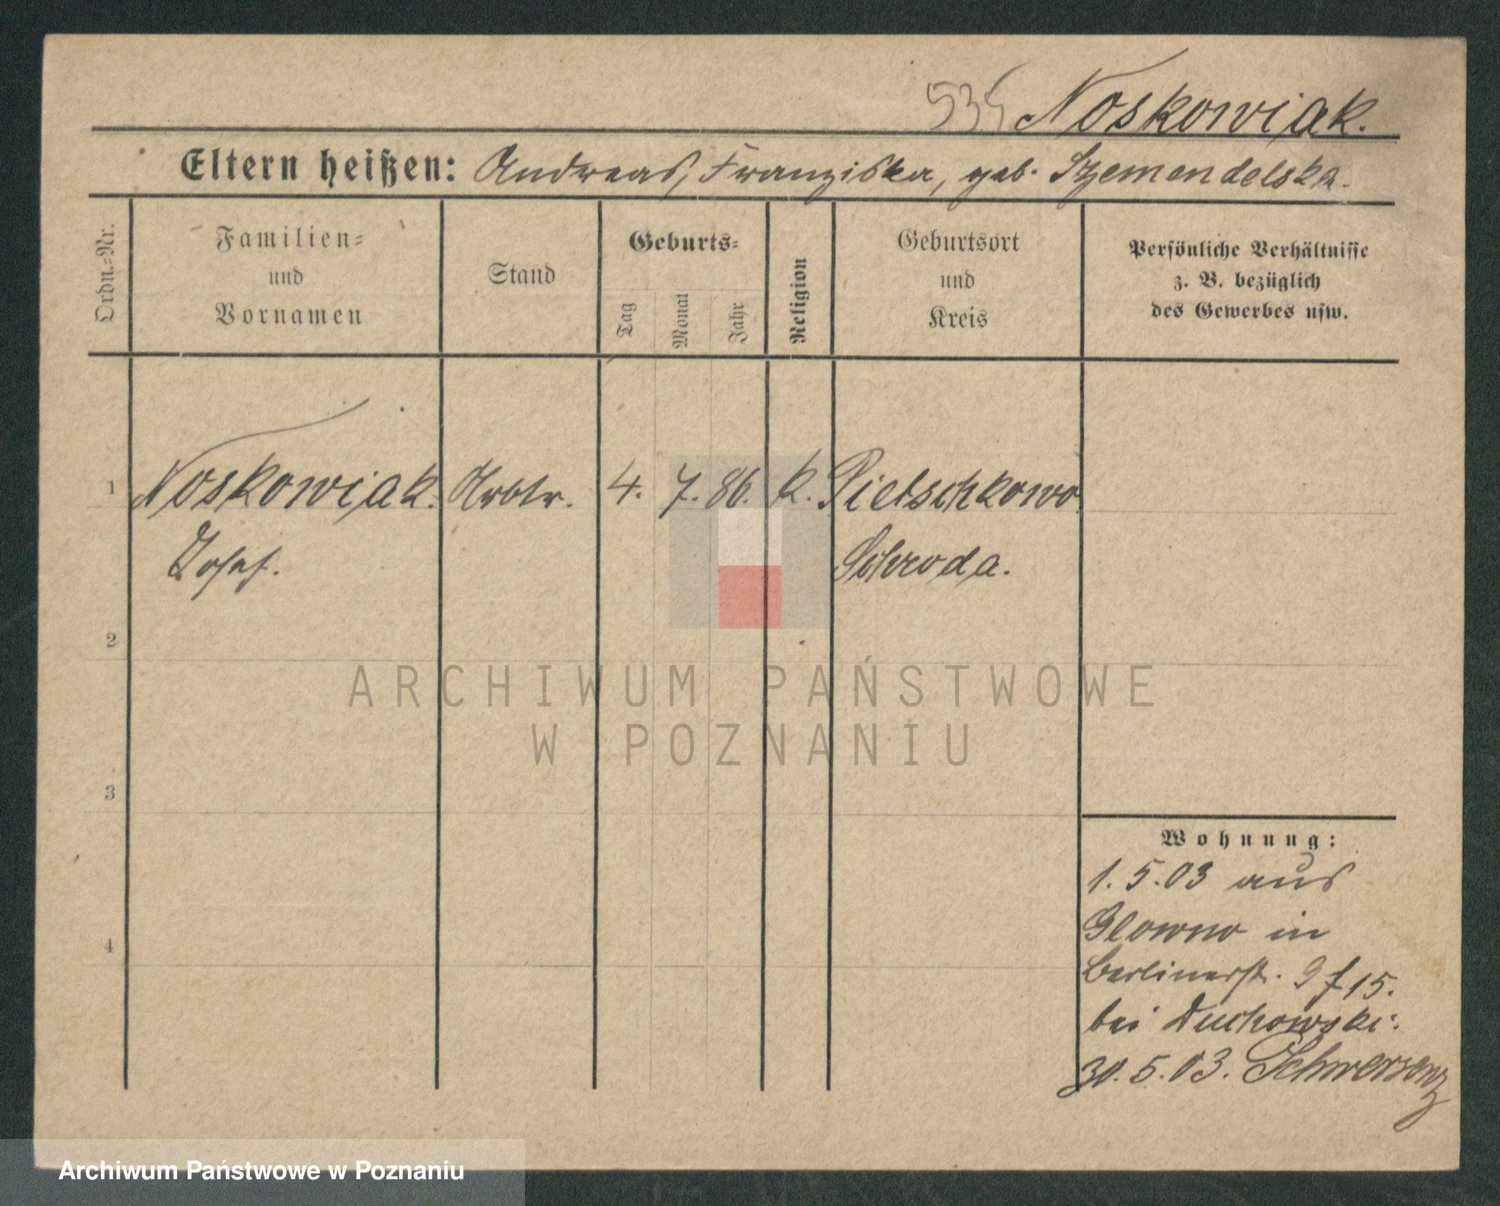 535 Noskowiak.
Eltern heißen: Andreas, Franziska, geb. Szemendelska.
Ordn.-Nr.
Familien-
und
Vornamen
Stand
Geburts-
Tag
Monat
Jahr
Religion
Geburtsort
und
Kreis
Persönliche Verhältnisse
z. B. bezüglich
des Gewerbes usw.
1 Noskowiak. Arbtr. 4. 7. 86. k. Pietschkowo
Josef. Schroda.
2
3
4
Wohnung:
1. 5. 03 aus
Glowno in
Berlinerst. 9 f 15.
bei Duchowski.
30. 5. 03. Schwersenz
ARCHIWUM PAŃSTWOWE
W POZNANIU
Archiwum Państwowe w Poznaniu